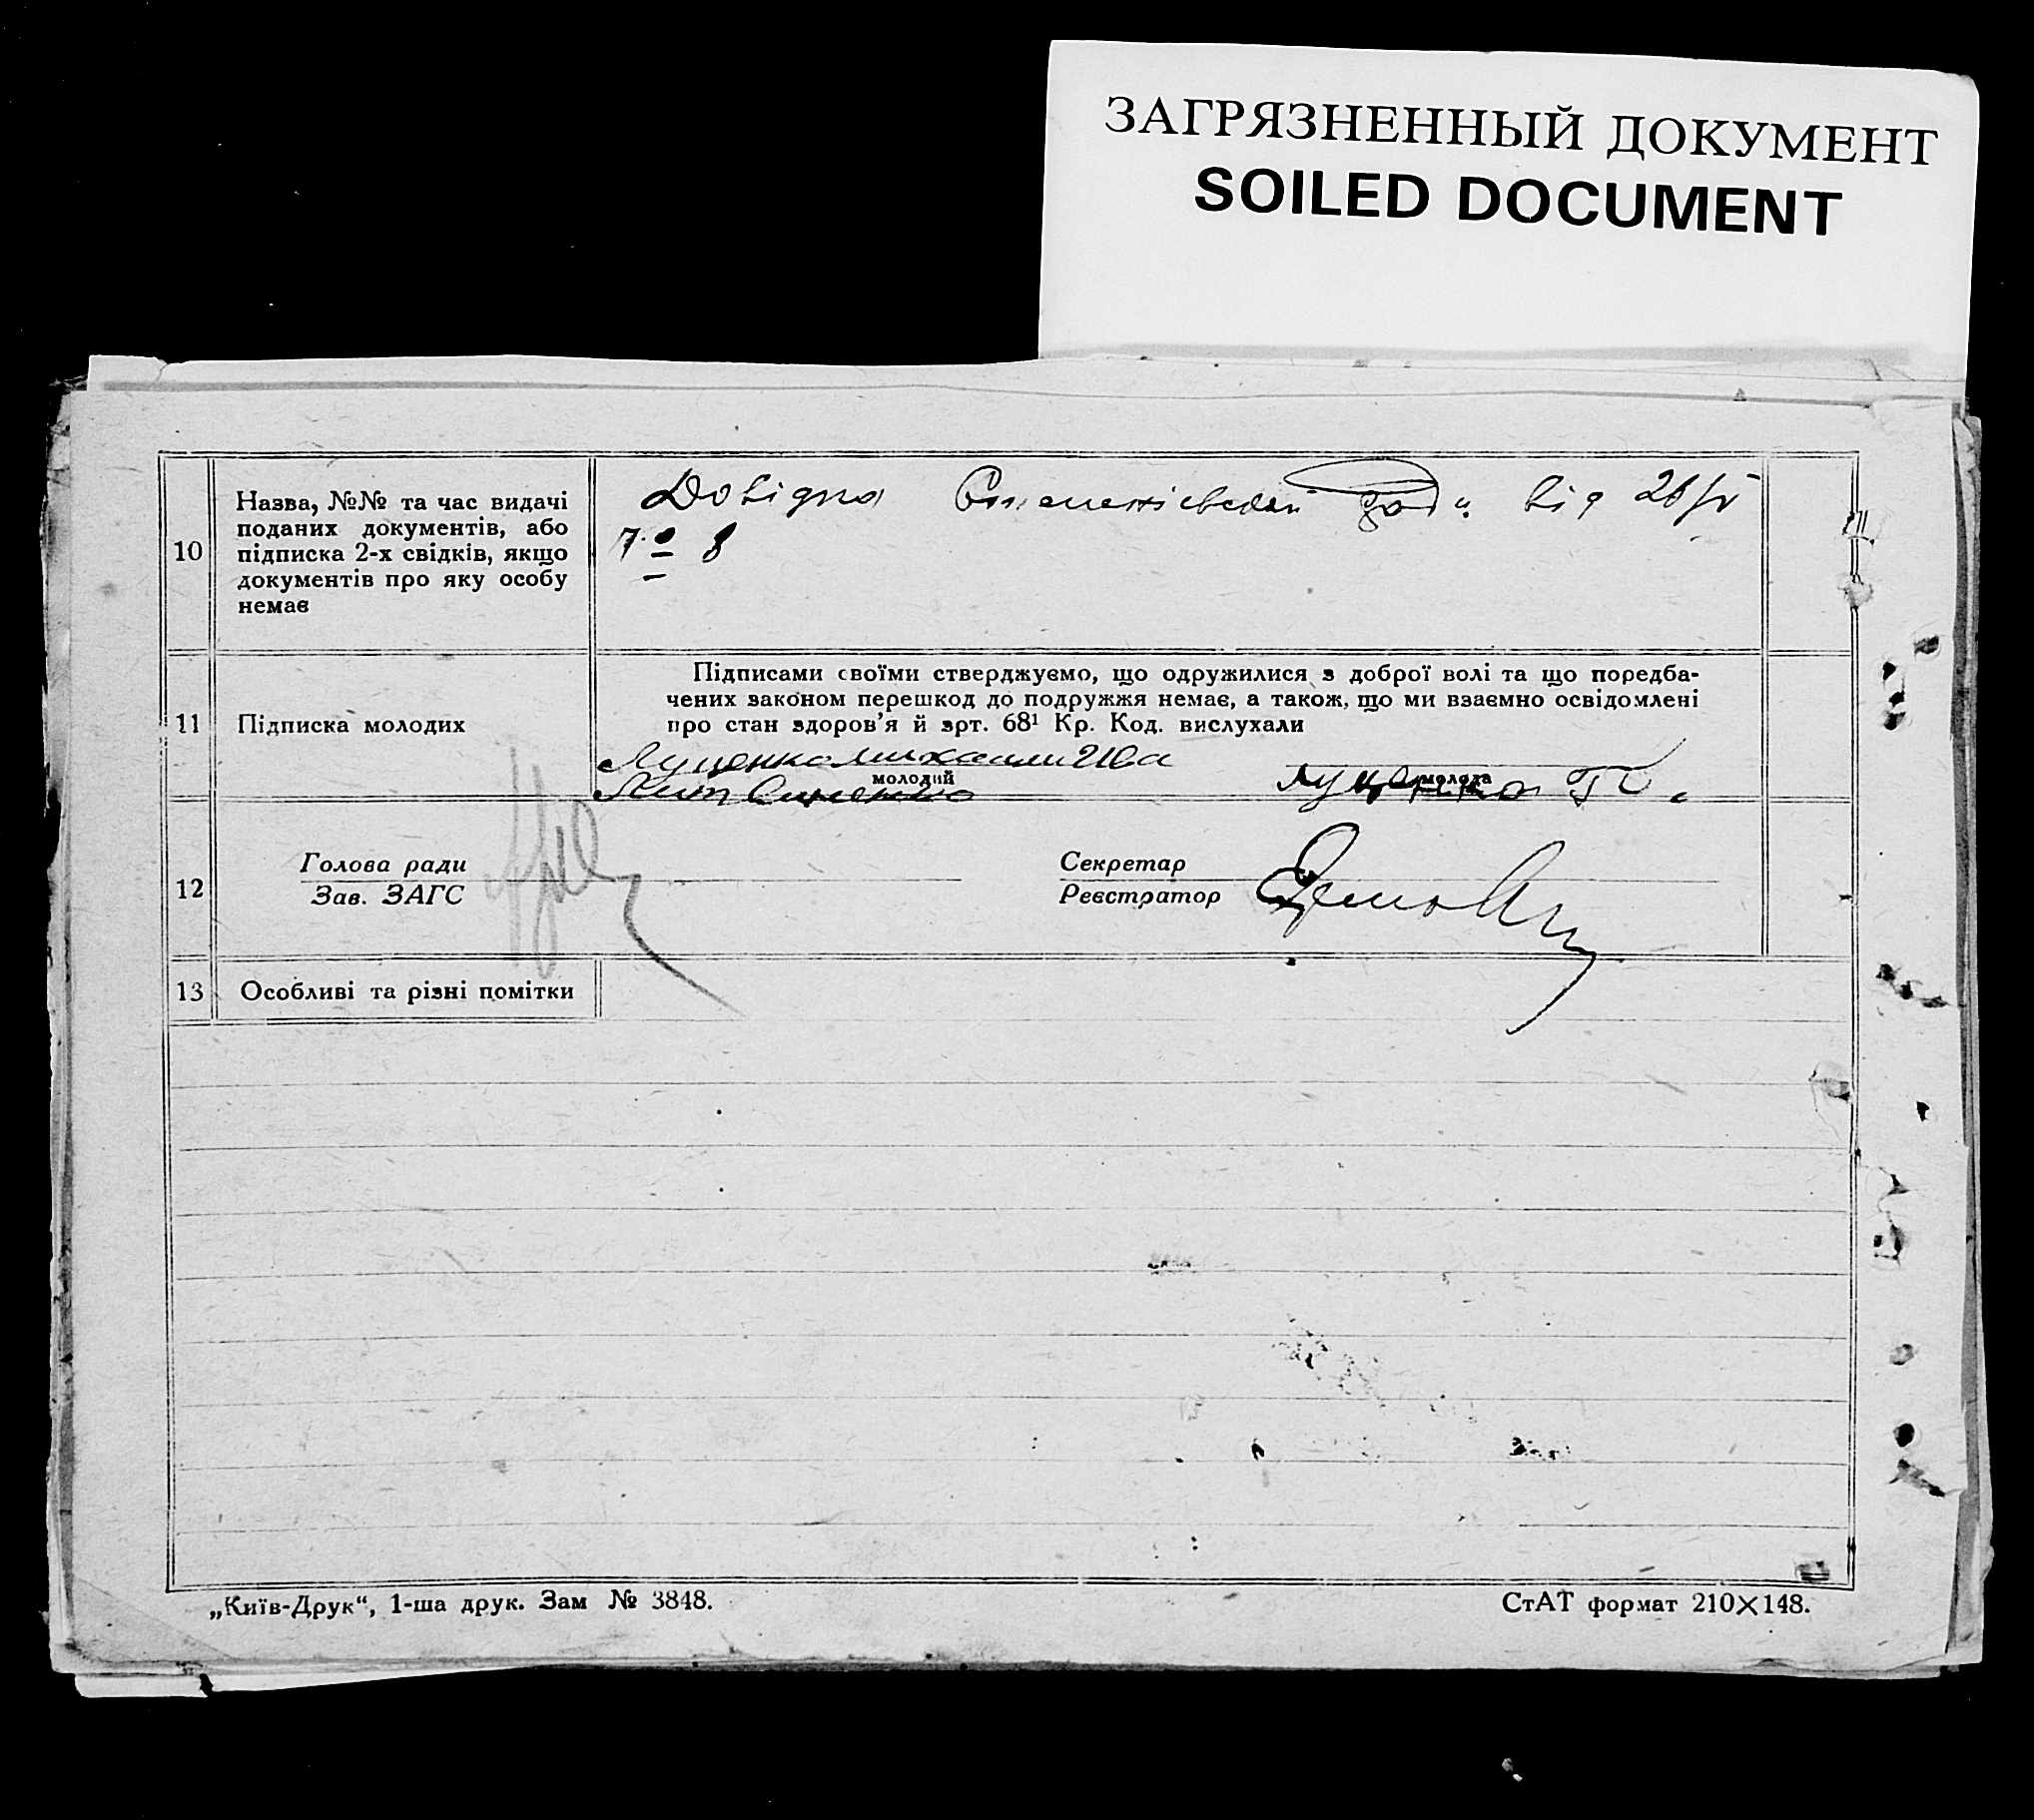 ЗАГРЯЗНЕННЫЙ ДОКУМЕНТ
SOILED DOCUMENT
10
Назва, №№ та час видачі
поданих документів, або
підписка 2-х свідків, якщо
документів про яку особу
немає
Довідка від
№ 8
11
Підписка молодих
Підписами своїми стверджуємо, що одружилися з доброї волі та що поредба-
чених законом перешкод до подружжя немає, а також, що ми взаємно освідомлені
про стан здоров'я й зрт. 68¹ Кр. Код. вислухали
Луценко
молодий
Луценко
молода
12
Голова ради
Зав. ЗАГС
Секретар
Реєстратор
13
Особливі та різні помітки
„Київ-Друк“, 1-ша друк. Зам № 3848.
СтАТ формат 210×148.